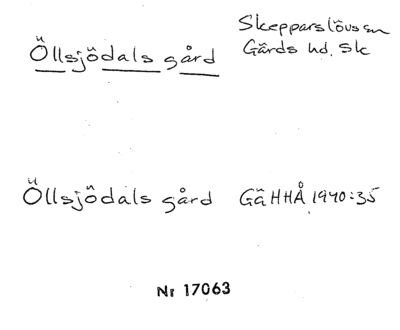 Öllsjödals gård
Skepparslövs sn
Gärds hd. Sk
Öllsjödals gård GäHHÅ 1940:35
Nr 17063